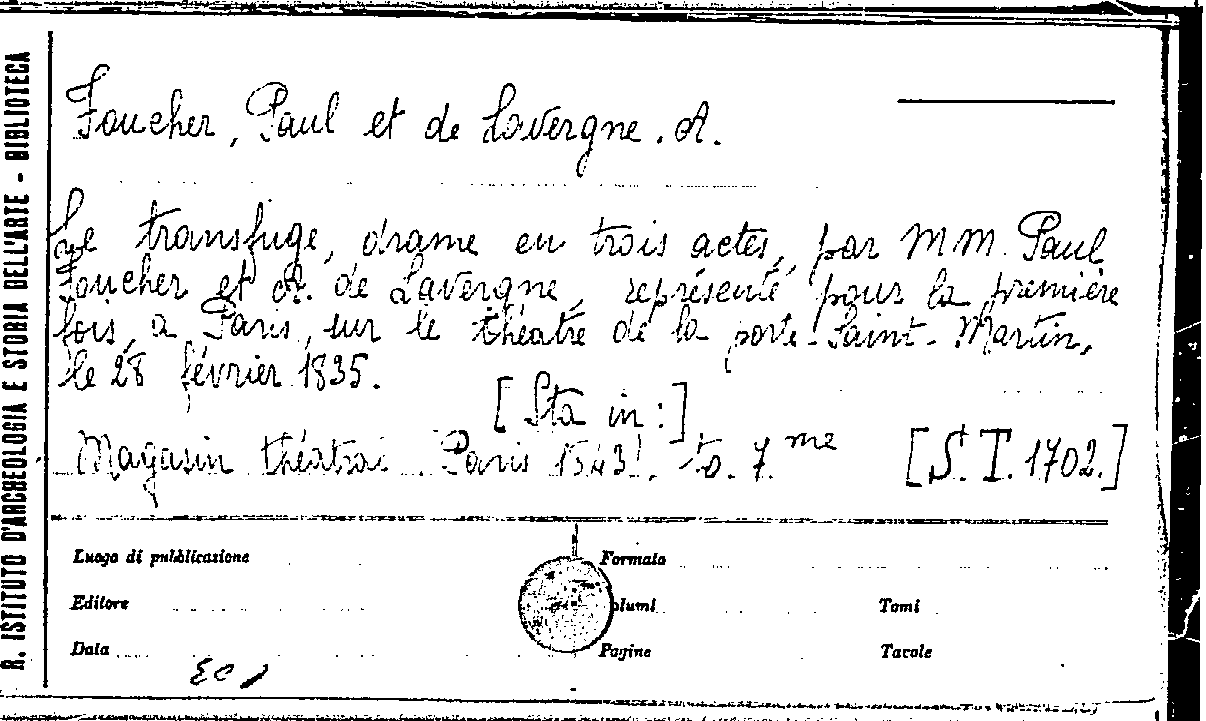 R. ISTITUTO D'ARCHEOLOGIA E STORIA DELL'ARTE - BIBLIOTECA
Foucher, Paul et de Lavergne. A.
Le transfuge, drame en trois actes, par MM. Paul
Foucher et A. de Lavergne, représenté pour la première
fois, a Paris, sur le théatre de la porte-Saint-Martin,
le 28 février 1835.
[Sta in:]
Magasin Paris to. 7.me [S. T. 1702.]
Luogo di pubblicazione Formato
Editore Tomi
Data Pagine Tavole